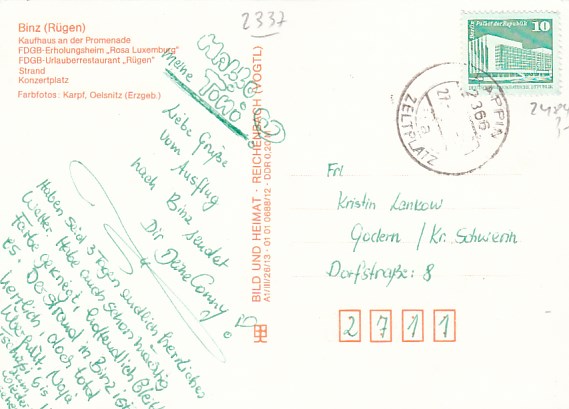 Binz (Rügen)
Kaufhaus an der Promenade
FDGB-Erholungsheim „Rosa Luxemburg"
FDGB-Urlauberrestaurant „Rügen"
Strand
Konzertplatz
Farbfotos: Karpf, Oelsnitz (Erzgeb.)
2337
meine
Liebe Grüße
vom Ausflug
nach Binz sendet
Dir Deine Conny
Haben seid 3 Tagen endlich herrliches
Wetter. Habe auch schon mächtig
Farbe gekriegt,
es. Der Strand in Binz ist
herrlich, doch total
überfüllt. Naja
BILD UND HEIMAT · REICHENBACH (VOGTL)
A1/III/26/13 · 01 01 0688/12 · DDR 0,20 M
Berlin, Palast der Republik
10
ZELTPLATZ
Frl
Kristin Lankow
Godern / Kr. Schwerin
Dorfstraße: 8
2711